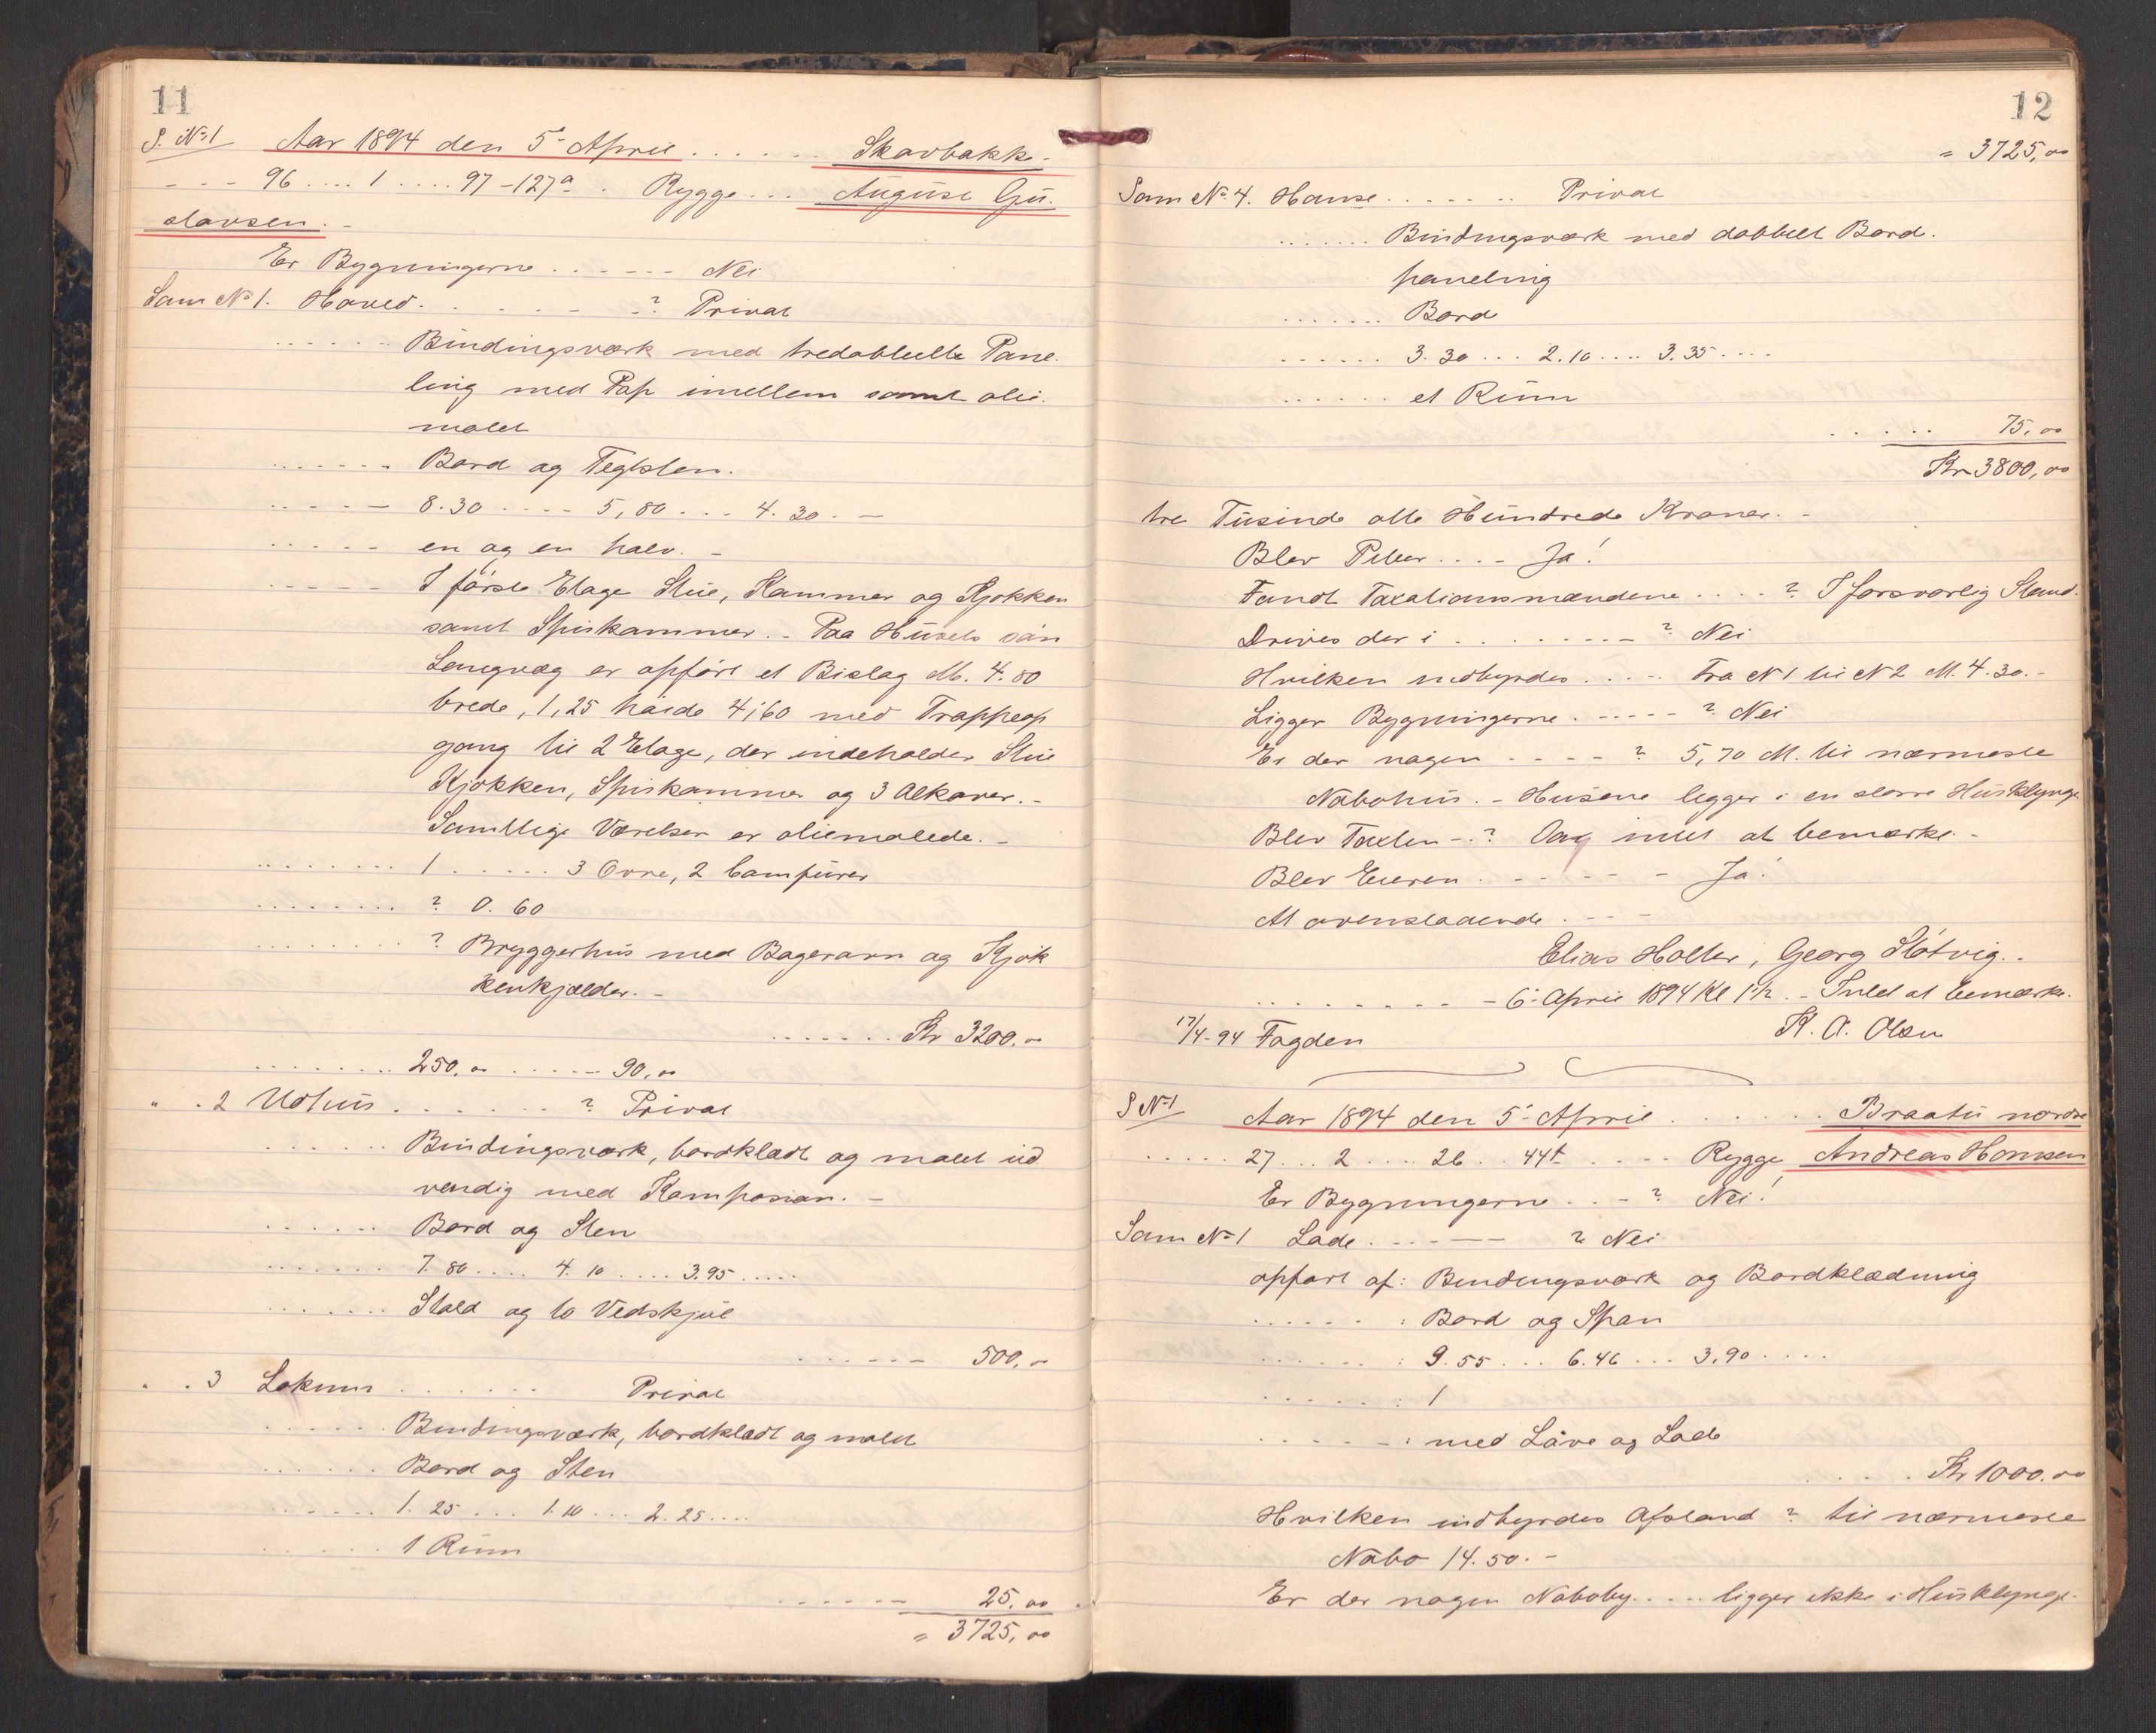 11
S. No 1 Aar 1894 den 5- April . . . . . . Skarbakke.
- - - 96 .... 1 .... 97-127a . Rygge ... August Gu.
stavsen. -
Er Bygningerne . . - - - - Nei
Sam No 1. Hoved. . . . . - - ? Privat
. . . . . . Bindingsværk med tredobbelt Pane.
ling med Pap imellem samt olie.
malet
. . . . . . Bord og Teglsten.
. . - - - 8.30 . . . - - 5,80 . . . 4.30. -
. . . - - en og en halv. -
- - - - - I første Etage Stue, Kammer og Kjøkken
samt Spiskammer. - Paa Husets
Langvæg er opført et Bislag M. 4.80
brede, 1,25 høide 4,60 med Trappeop
gang til 2 Etage, der indeholder Stue
Kjøkken, Spiskammer og 3 Alkover. -
Samtlige Værelser er oliemalede. -
. . . . . . . . 1 . . . . . . 3 Ovne, 2 Comfurer
. . . . . . . . ? 0.60
. . . . . . . . ? Bryggerhus med Bagerovn og Kjøk
kenkjælder. -
. . . . . . . Kr 3200.00
. . . . . . . . 250,00 . . . - - 90,00
" . 2 Udhus . . . . . . . ? Privat
. . . . . . Bindingsværk, bordklædt og malet ud
vendig med Komposion. -
. . . . . . Bord og Sten
. . . . . . . 7.80 .... 4.10 ..... 3.95 .....
. . . . . . . Stald og to Vedskjul
. . . . - - - 500,00
" . 3 Lokum . . . . . . . Privat
. . . . . . Bindingsværk, bordklædt og malet
. . . . . . Bord og Sten
. . . - - - 1.25 ... 1.10 ... 2.25 ....
. . . . . 1 Rum
. . . . - - - 25,00
" 3725,00
12
" 3725,00
Sam No 4. Hønse . . . . . . . . Privat
. . . . . . . Bindingsværk med dobbelt Bord.
paneling
. . . . . . . Bord
. . - - - - 3.30 ... 2.10 .... 3.35 ....
. . . . . . et Rum
. . . . . . 75,00
Kr 3800,00
tre Tusinde otte Hundrede Kroner. -
Blev Piber . . . - Ja!
Fandt Taxationsmændene . . . . ? I forsvarlig Stand.
Drives der i . . . . . . - - ? Nei
Hvilken indbyrdes . . . - - Fra N 1 til N 2 M. 4.30. -
Ligger Bygningerne . - - - - ? Nei
Er der nogen - - - - ? 5,70 M. til nærmeste
Nabohus. - Husene ligger i en større Husklynge.
Blev Taxten - . ? Og intet at bemærke. -
Blev Eieren . - - - - - Ja!
At ovenstaaende . - - -
Elias Holter, Georg Slötvig. .
. . . . . . . . - - 6- April 1894 Kl 1 1/2. - Intet at bemærke.
17/4-94 Fogden K. A. Olsen
S No 1 Aar 1894 den 5- April . . . . . . . Braatu nordre
. . . . . 27 ... 2 .... 26 ... 44t . . . - - Rygge Andreas Hansen
Er Bygningerne . . . - ? Nei!
Sam No 1 Lade . . . - - - - ? Nei
opført af: Bindingsværk og Bordklædning
. . . . . . : Bord og Spon
. . . . . . : 9.55 ... 6.46 ... 3.90 ....
. . . . . . : 1
. . . - - - : med Låve og Lade
. . . . . Kr 1000.00
Hvilken indbyrdes Afstand ? til nærmeste
Nabo 14.50. -
Er der nogen Naboby . . . . ligger ikke i Husklynge.